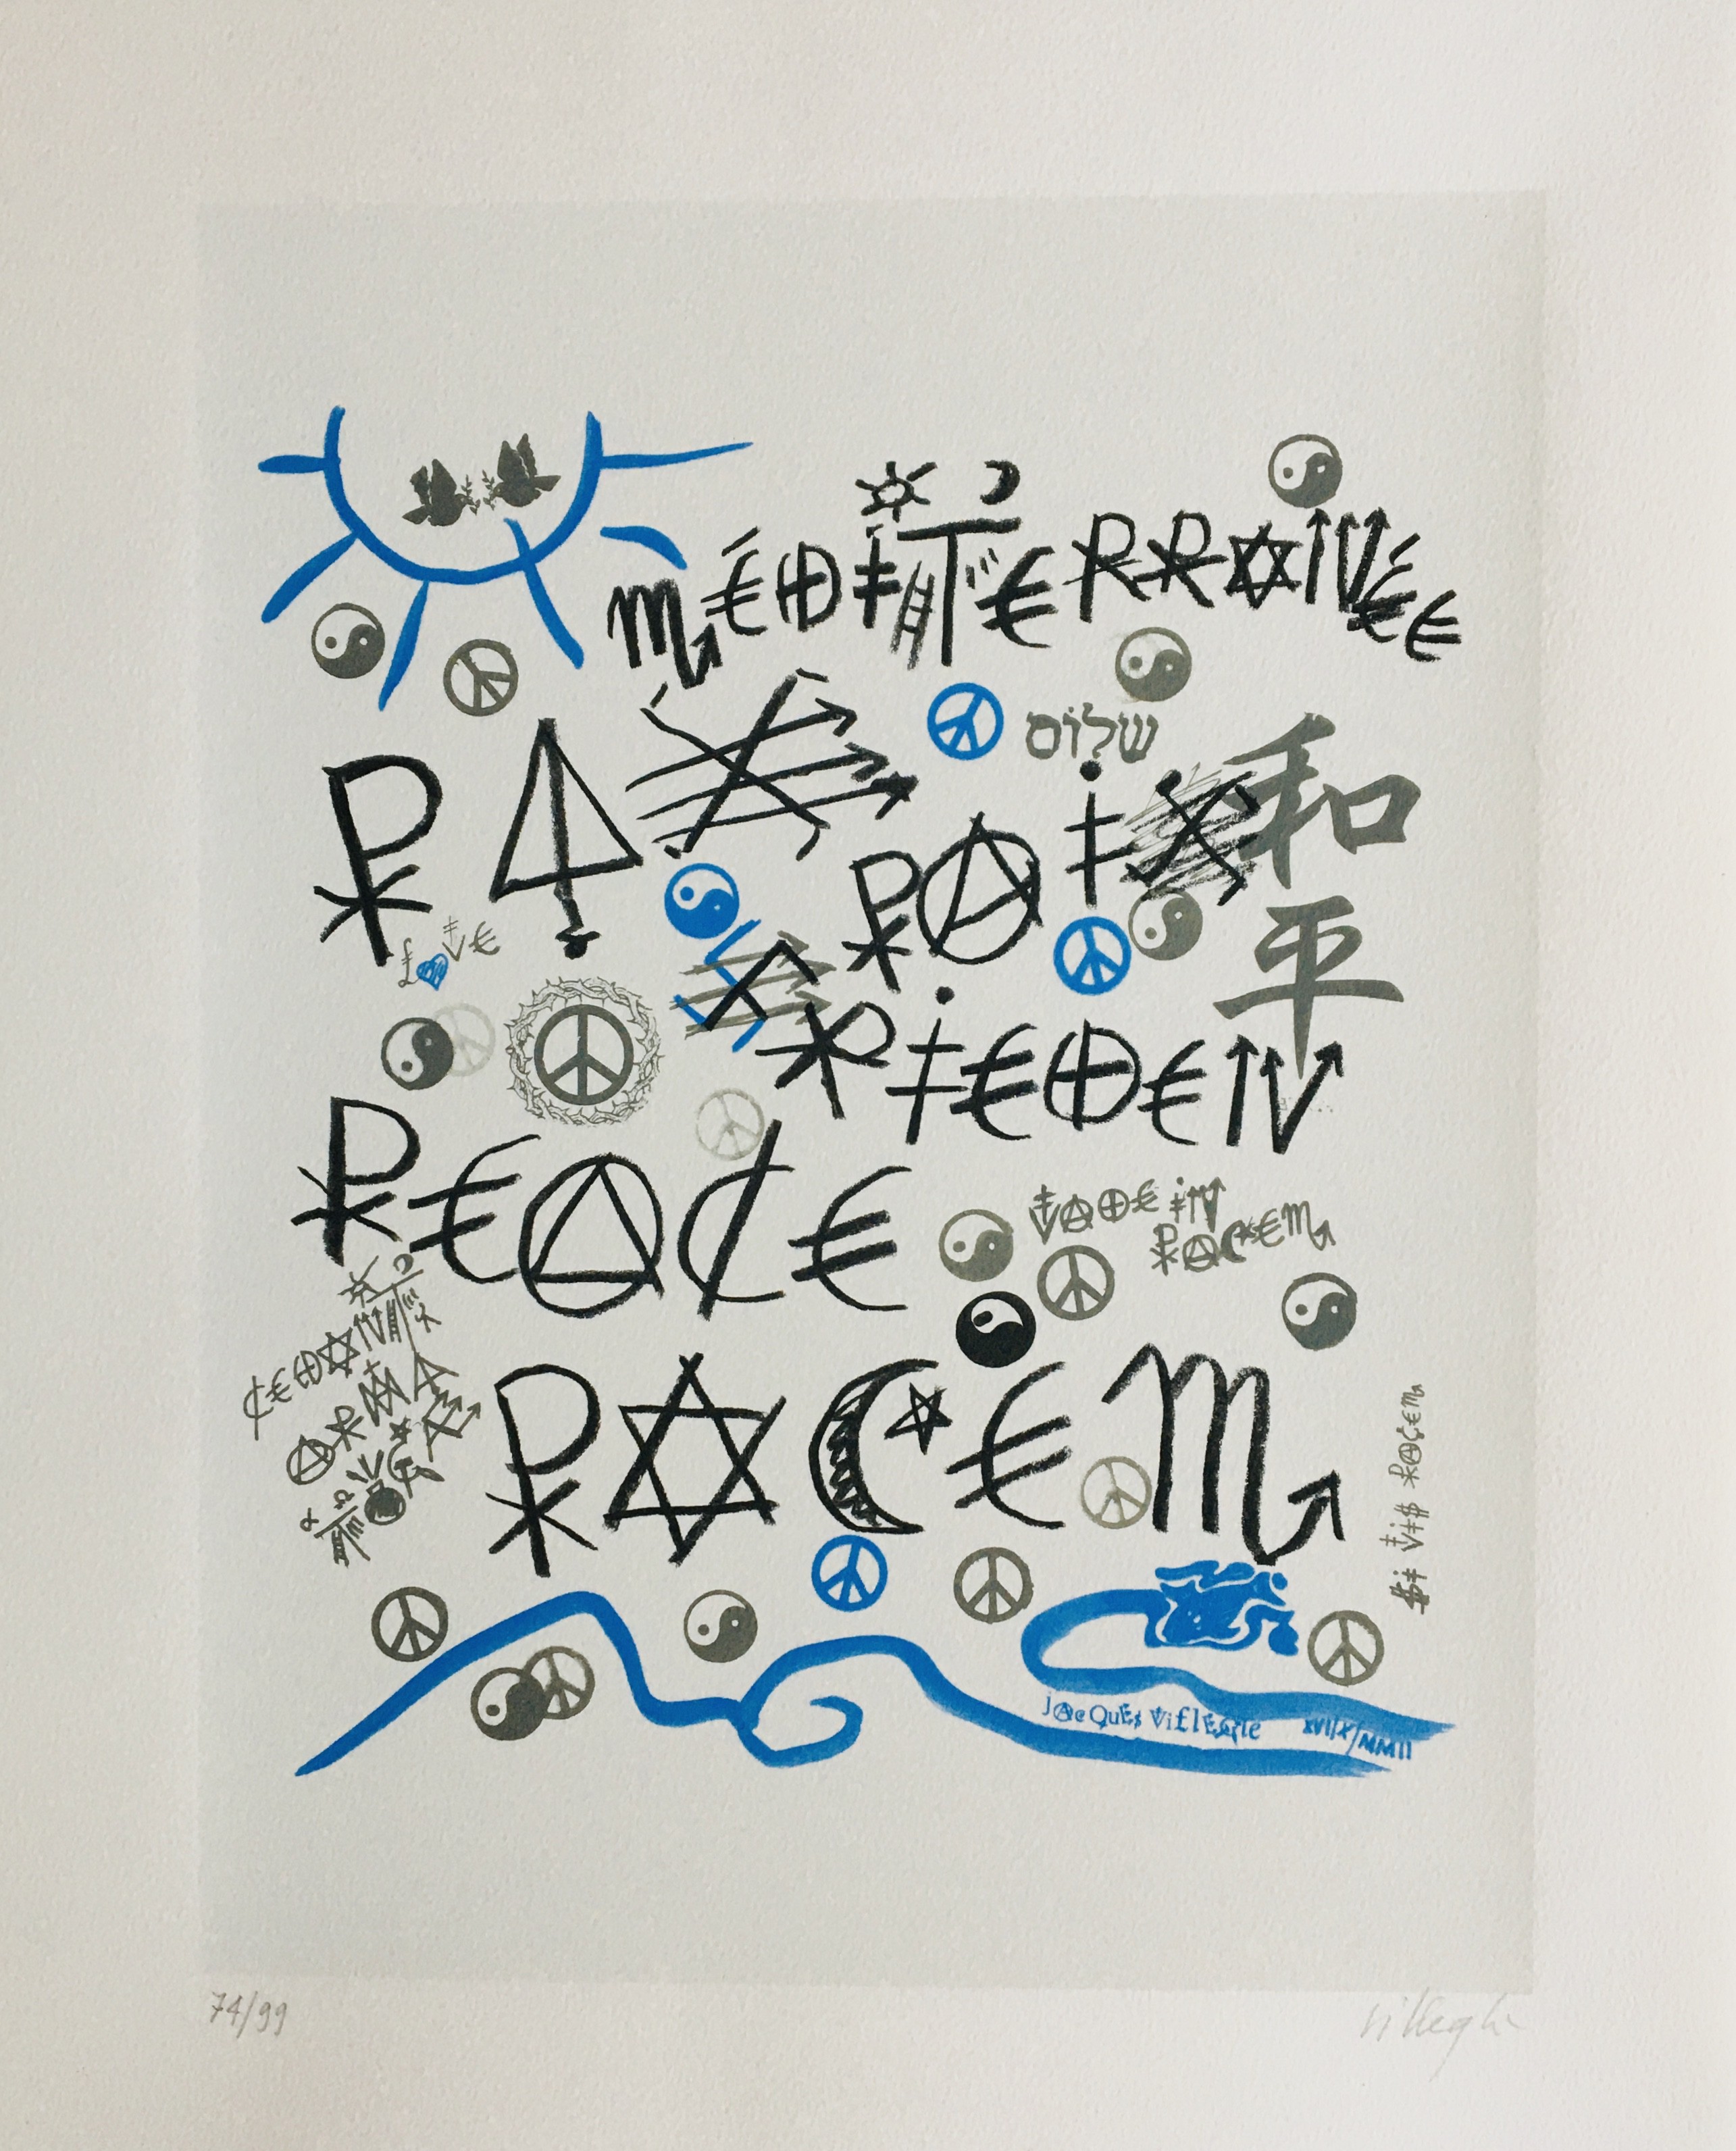 MÉDITERRANÉE
PAX
שלום
PAIX
和平
LOVE
FRIEDEN
PEACE
VADE IN
PACEM
CEDANT
ARMA
PACEM
SI VIS PACEM
JACQUES VILLEGLÉ XVII/X/MMII
74/99
Villeglé